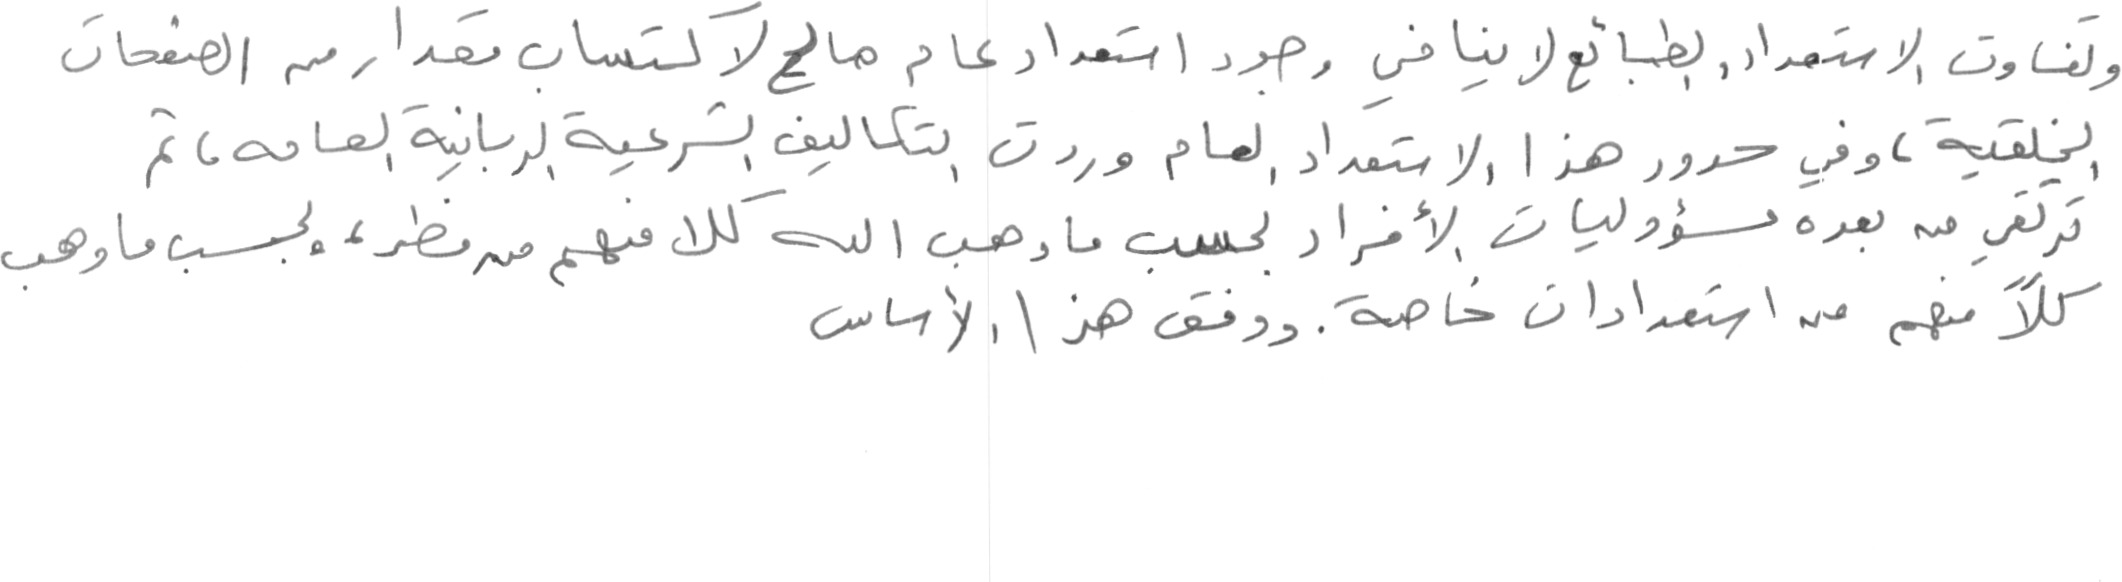 وتفاوت الاستعداد الطبائع لا ينافي وجود استعداد عام صالح لاكتساب مقدار من الصفحات
الخلقية، وفي حدود هذا الاستعداد العام وردت التكاليف الشرعية الربانية العامه، ثم
ترتقي من بعده مسؤوليات الأفراد بحسب ما وهب الله كلا منهم من فطر، وبحسب ما وهب
كلاً منهم من استعدادات خاصة. ووفق هذا الأساس